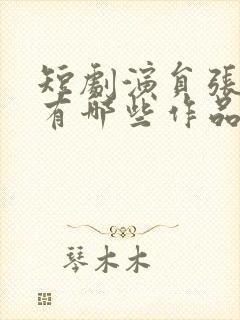 短劇演員張
有哪些作品
琴木木